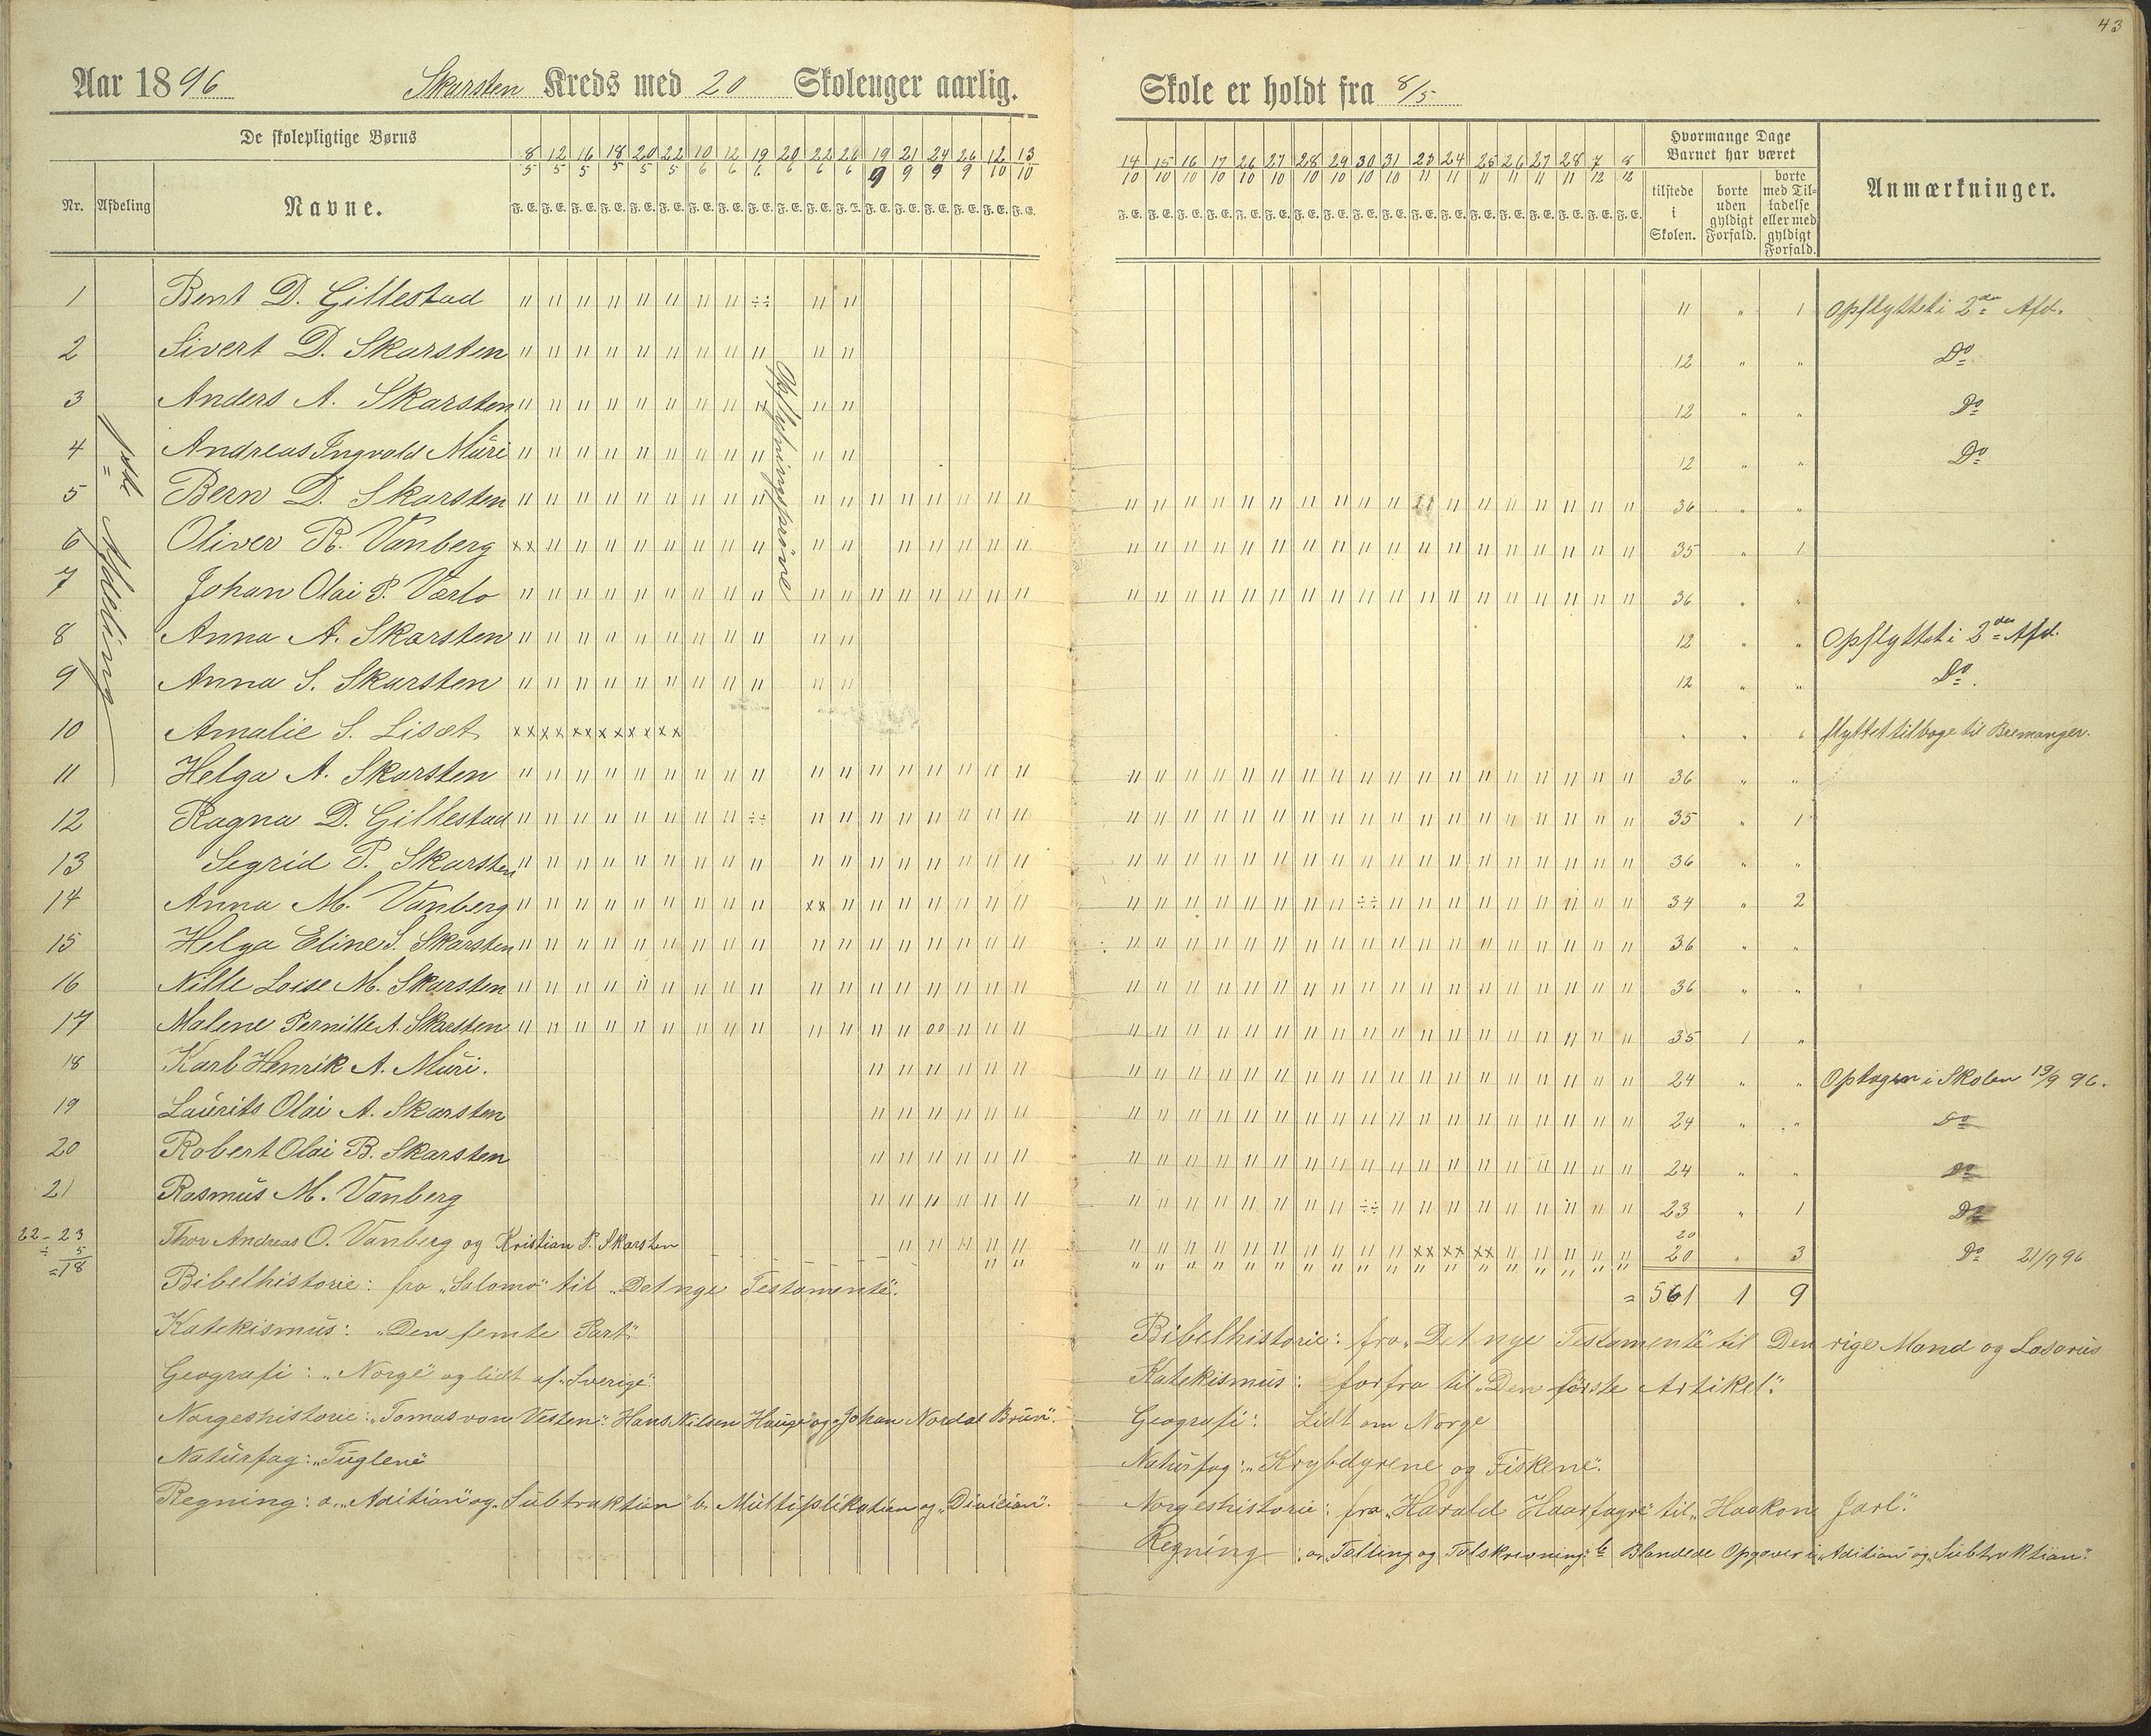 43
Aar 1896 Skarsten Kreds med 20 Skoleuger aarlig. Skole er holdt fra 8/5
De skolepligtige Børns
Nr. Afdeling Navne.
8/5 12/5 16/5 18/5 20/5 22/5 10/6 12/6 19/6 20/6 22/6 26/6 19/9 21/9 24/9 26/9 12/10 13/10
14/10 15/10 16/10 17/10 26/10 27/10 28/10 29/10 30/10 31/10 23/11 24/11 25/11 26/11 27/11 28/11 7/12 8/12
F. E. F. E. F. E. F. E. F. E. F. E. F. E. F. E. F. E. F. E. F. E. F. E. F. E. F. E. F. E. F. E. F. E. F. E.
F. E. F. E. F. E. F. E. F. E. F. E. F. E. F. E. F. E. F. E. F. E. F. E. F. E. F. E. F. E. F. E. F. E. F. E.
Hvormange Dage Barnet har været
tilstede i Skolen.
borte uden gyldigt Forfald.
borte med Tilladelse eller med gyldigt Forfald.
Anmærkninger.
Afdeling
Opflytningsprøve
1 Bent D. Gillestad 11 " 1 Opflyttet i 2den Afd.
2 Sivert D. Skarsten 12 " " Do
3 Anders A. Skarsten 12 " " Do
4 Andreas Ingvald Muri 12 " " Do
5 Bern D. Skarsten 36 " "
6 Oliver R. Vanberg 35 " 1
7 Johan Olai P. Værlo 36 " "
8 Anna A. Skarsten 12 " " Opflyttet i 2den Afd.
9 Anna S. Skarsten 12 " " Do
10 Amalie S. Liset " " " flyttet tilbage til Bremanger.
11 Helga A. Skarsten 36 " "
12 Ragna D. Gillestad 35 " 1
13 Segrid P. Skarsten 36 " "
14 Anna M. Vanberg 34 " 2
15 Helga Eline S. Skarsten 36 " "
16 Nille Loise M. Skarsten 36 " "
17 Malene Pernille A. Skarsten 35 1 "
18 Karl Henrik A. Muri. 24 " " Optagen i Skolen 19/9 96.
19 Laurits Olai A. Skarsten 24 " " Do
20 Robert Olai B. Skarsten 24 " " Do
21 Rasmus M. Vanberg 23 " 1 Do
22-23 Thor Andreas O. Vanberg og Kristian P. Skarsten 20 20 " 3 Do 21/9 96
÷ 5
=18
= 561 1 9
Bibelhistorie: fra "Salomo" til "Det nye Testamente".
Katekismus: "Den femte Part"
Geografi: "Norge" og lidt af "Sverige".
Norgeshistorie: "Tomas von Vesten": Hans Nilsen Hauge" og "Johan Nordal Brun".
Naturfag: "Fuglene"
Regning: a. "Adition" og "Subtraktion" b. Multiplikation og "Division".
Bibelhistorie: fra "Det nye Testamente" til Den rige Mand og Lasarus
Katekismus: forfra til "Den første Artikel".
Geografi: Lidt om Norge
Naturfag: "Krybdyrene og Fiskene".
Norgeshistorie: fra "Harald Haarfagre" til "Haakon Jarl".
Regning: a. "Tælling og Talskrivning". b Blandede Opgaver i "Adition" og "Subtraktion".